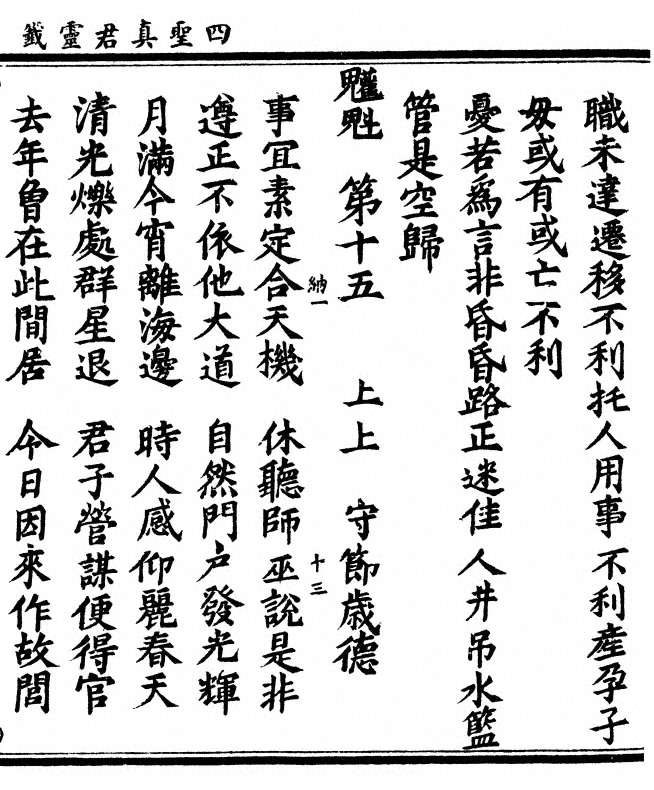 四聖真君靈籤
職未達遷移不利托人用事不利產孕子
毋或有或亡不利
憂若爲言非昏昏路正迷佳人井吊水籃
管是空歸
第十五 上上 守節歲德
納一 十三
事宜素定合天機 休聽師巫說是非
遵正不依他大道 自然門戶發光輝
月滿今宵離海邊 時人感仰麗春天
清光爍處群星退 君子營謀便得官
去年曾在此間居 今日因來作故閭